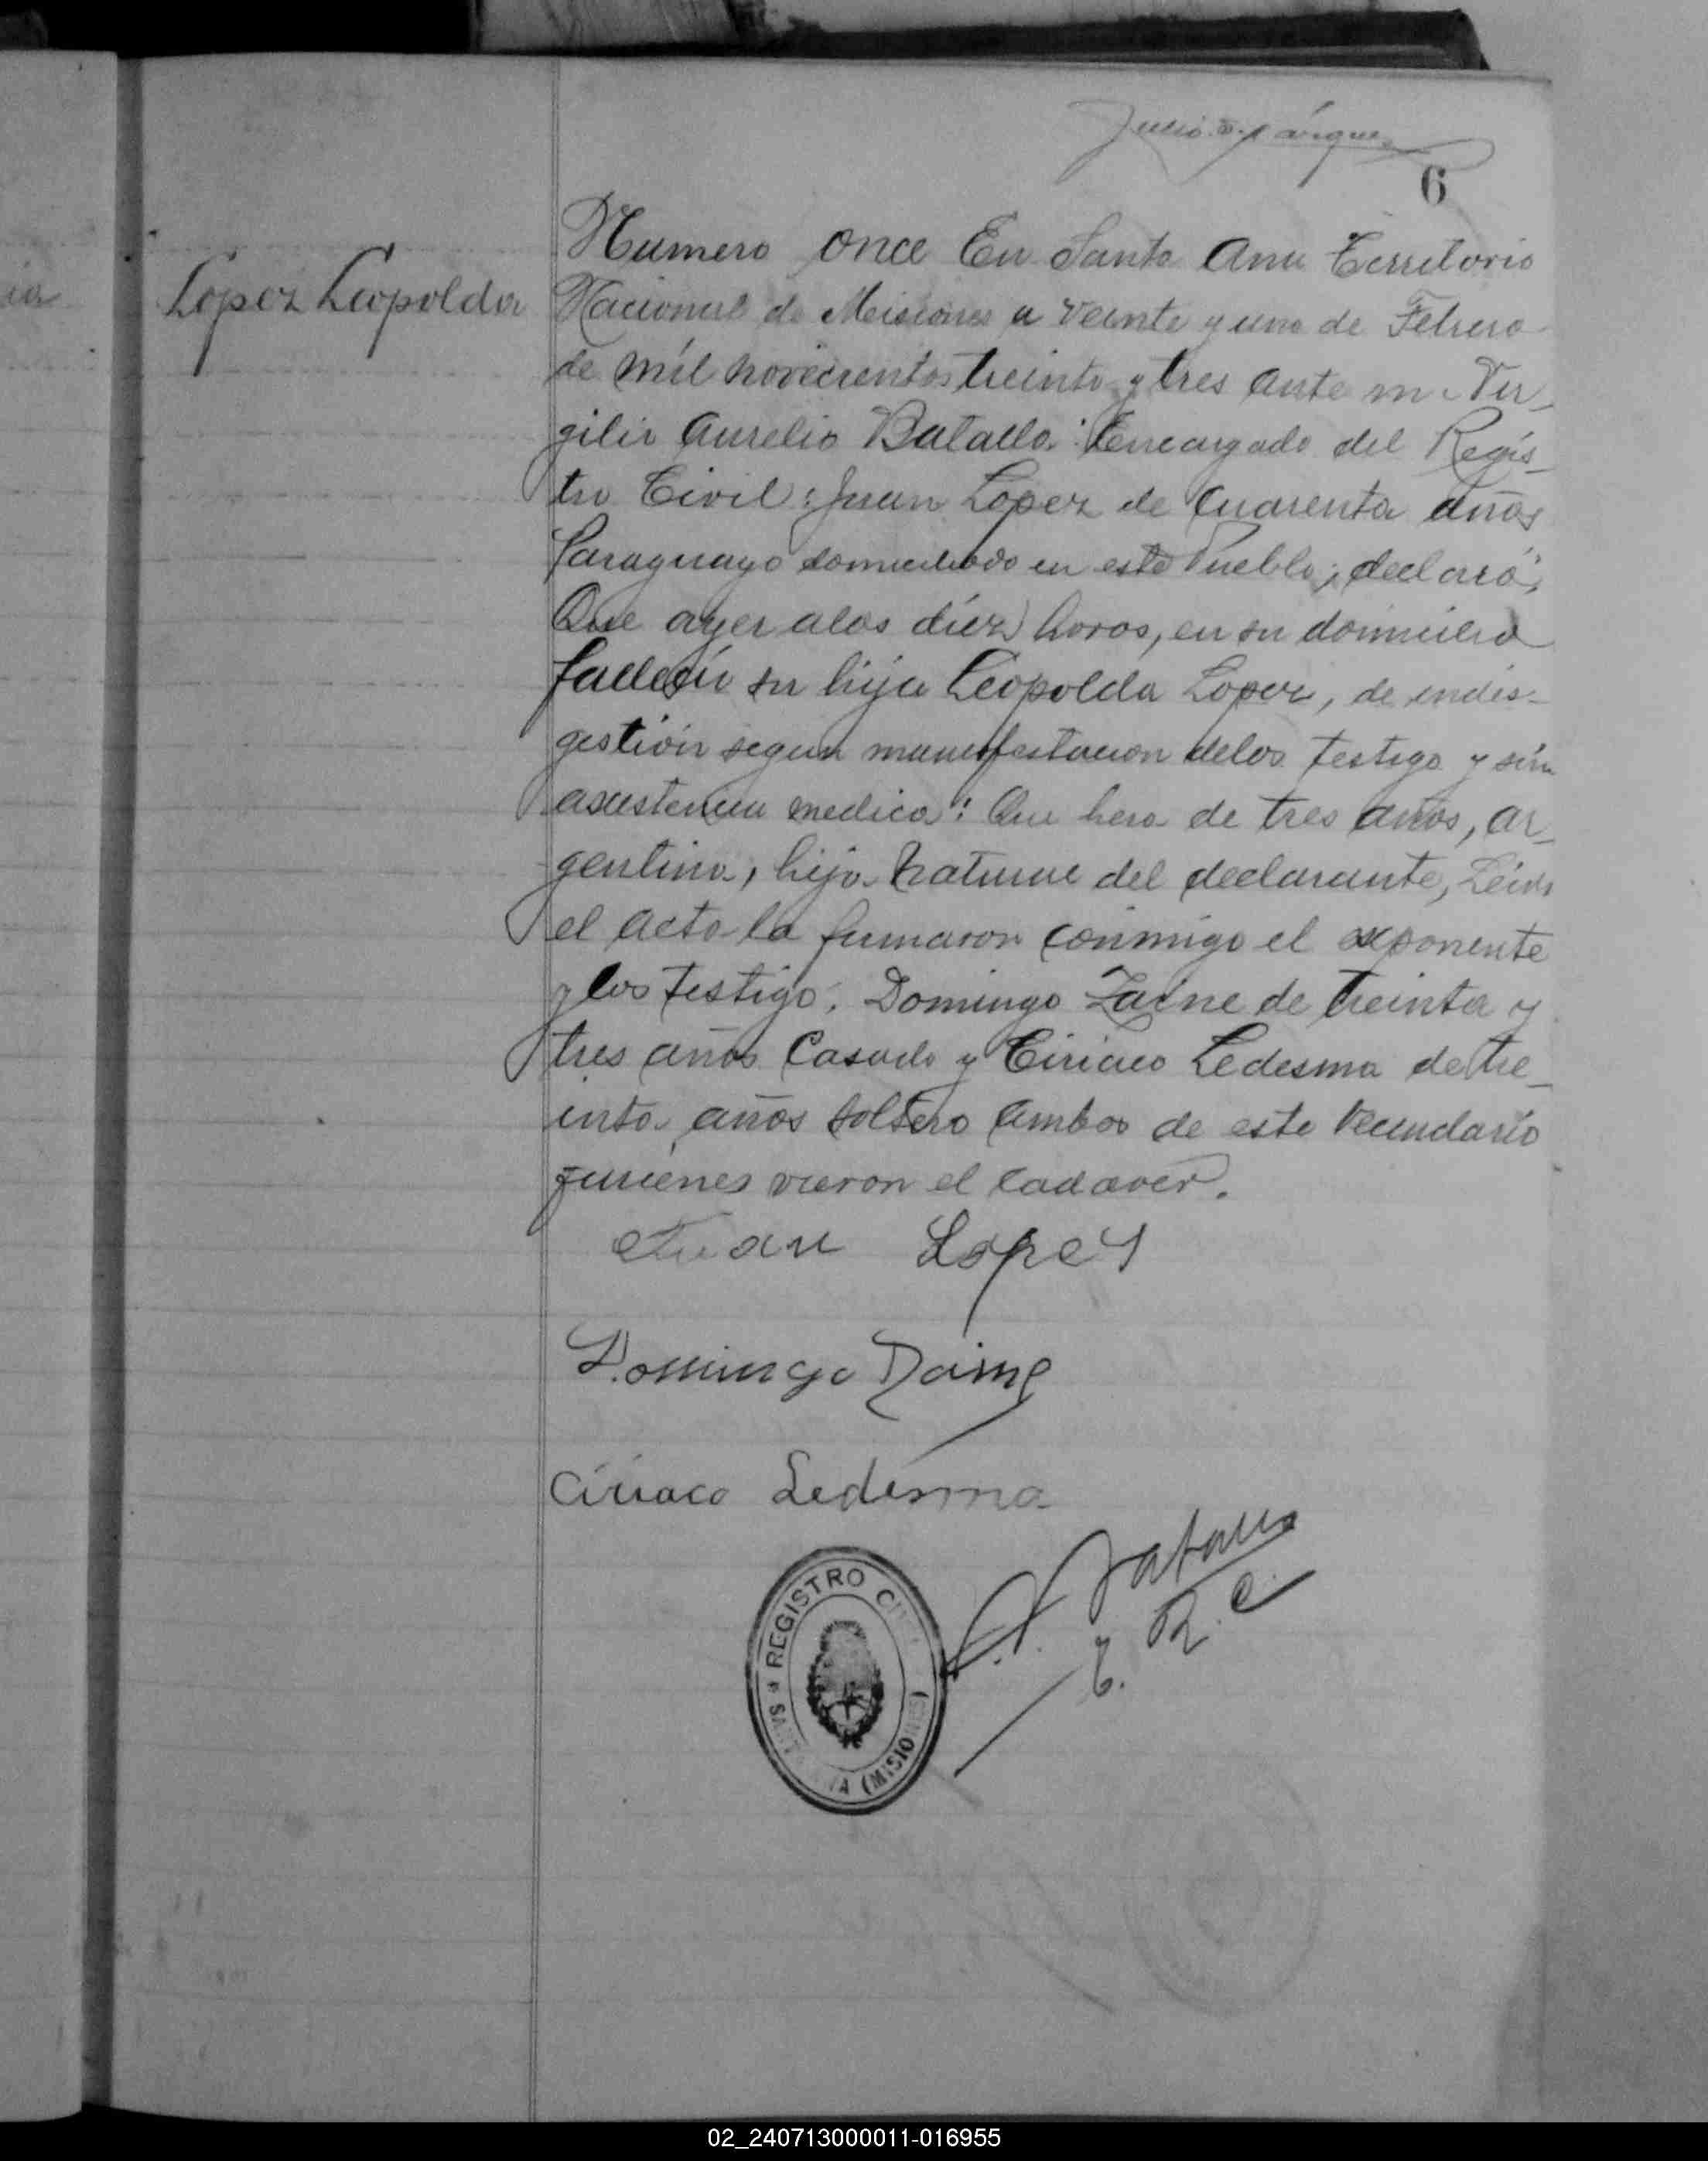 6
Lopez Leopolda
Numero once En Santa Ana Territorio
Nacional de Misiones a veinte y uno de Febrero
de mil novecientos treinta y tres ante mi Vir_
gilio Aurelio Batalla: Encargado del Regis_
tro Civil: Juan Lopez de Cuarenta años
Paraguayo domiciliado en este Pueblo; declaró;
Que ayer a las diez horas, en su domicilio
fallecio su hija Leopolda Lopez, de indis-
gestión segun manifestacion de los testigo y sin
asistencia medica: Que hera de tres años, ar_
gentina, hija natural del declarante, Leida
el acta la firmaron conmigo el exponente
y los testigo: Domingo Zaine de treinta y
tres años Casado y Ciriaco Ledesma de tre_
inta años soltero ambos de este Vecindario
quiénes vieron el cadaver.
Juan Lopez
Domingo
Ciriaco Ledesma
E. R. C.
REGISTRO CIVIL
SANTA ANA (MISIONES)
02_240713000011-016955